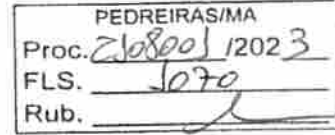 PEDREIRAS/MA
Proc. 2108001 /2023
FLS. 1070
Rub.